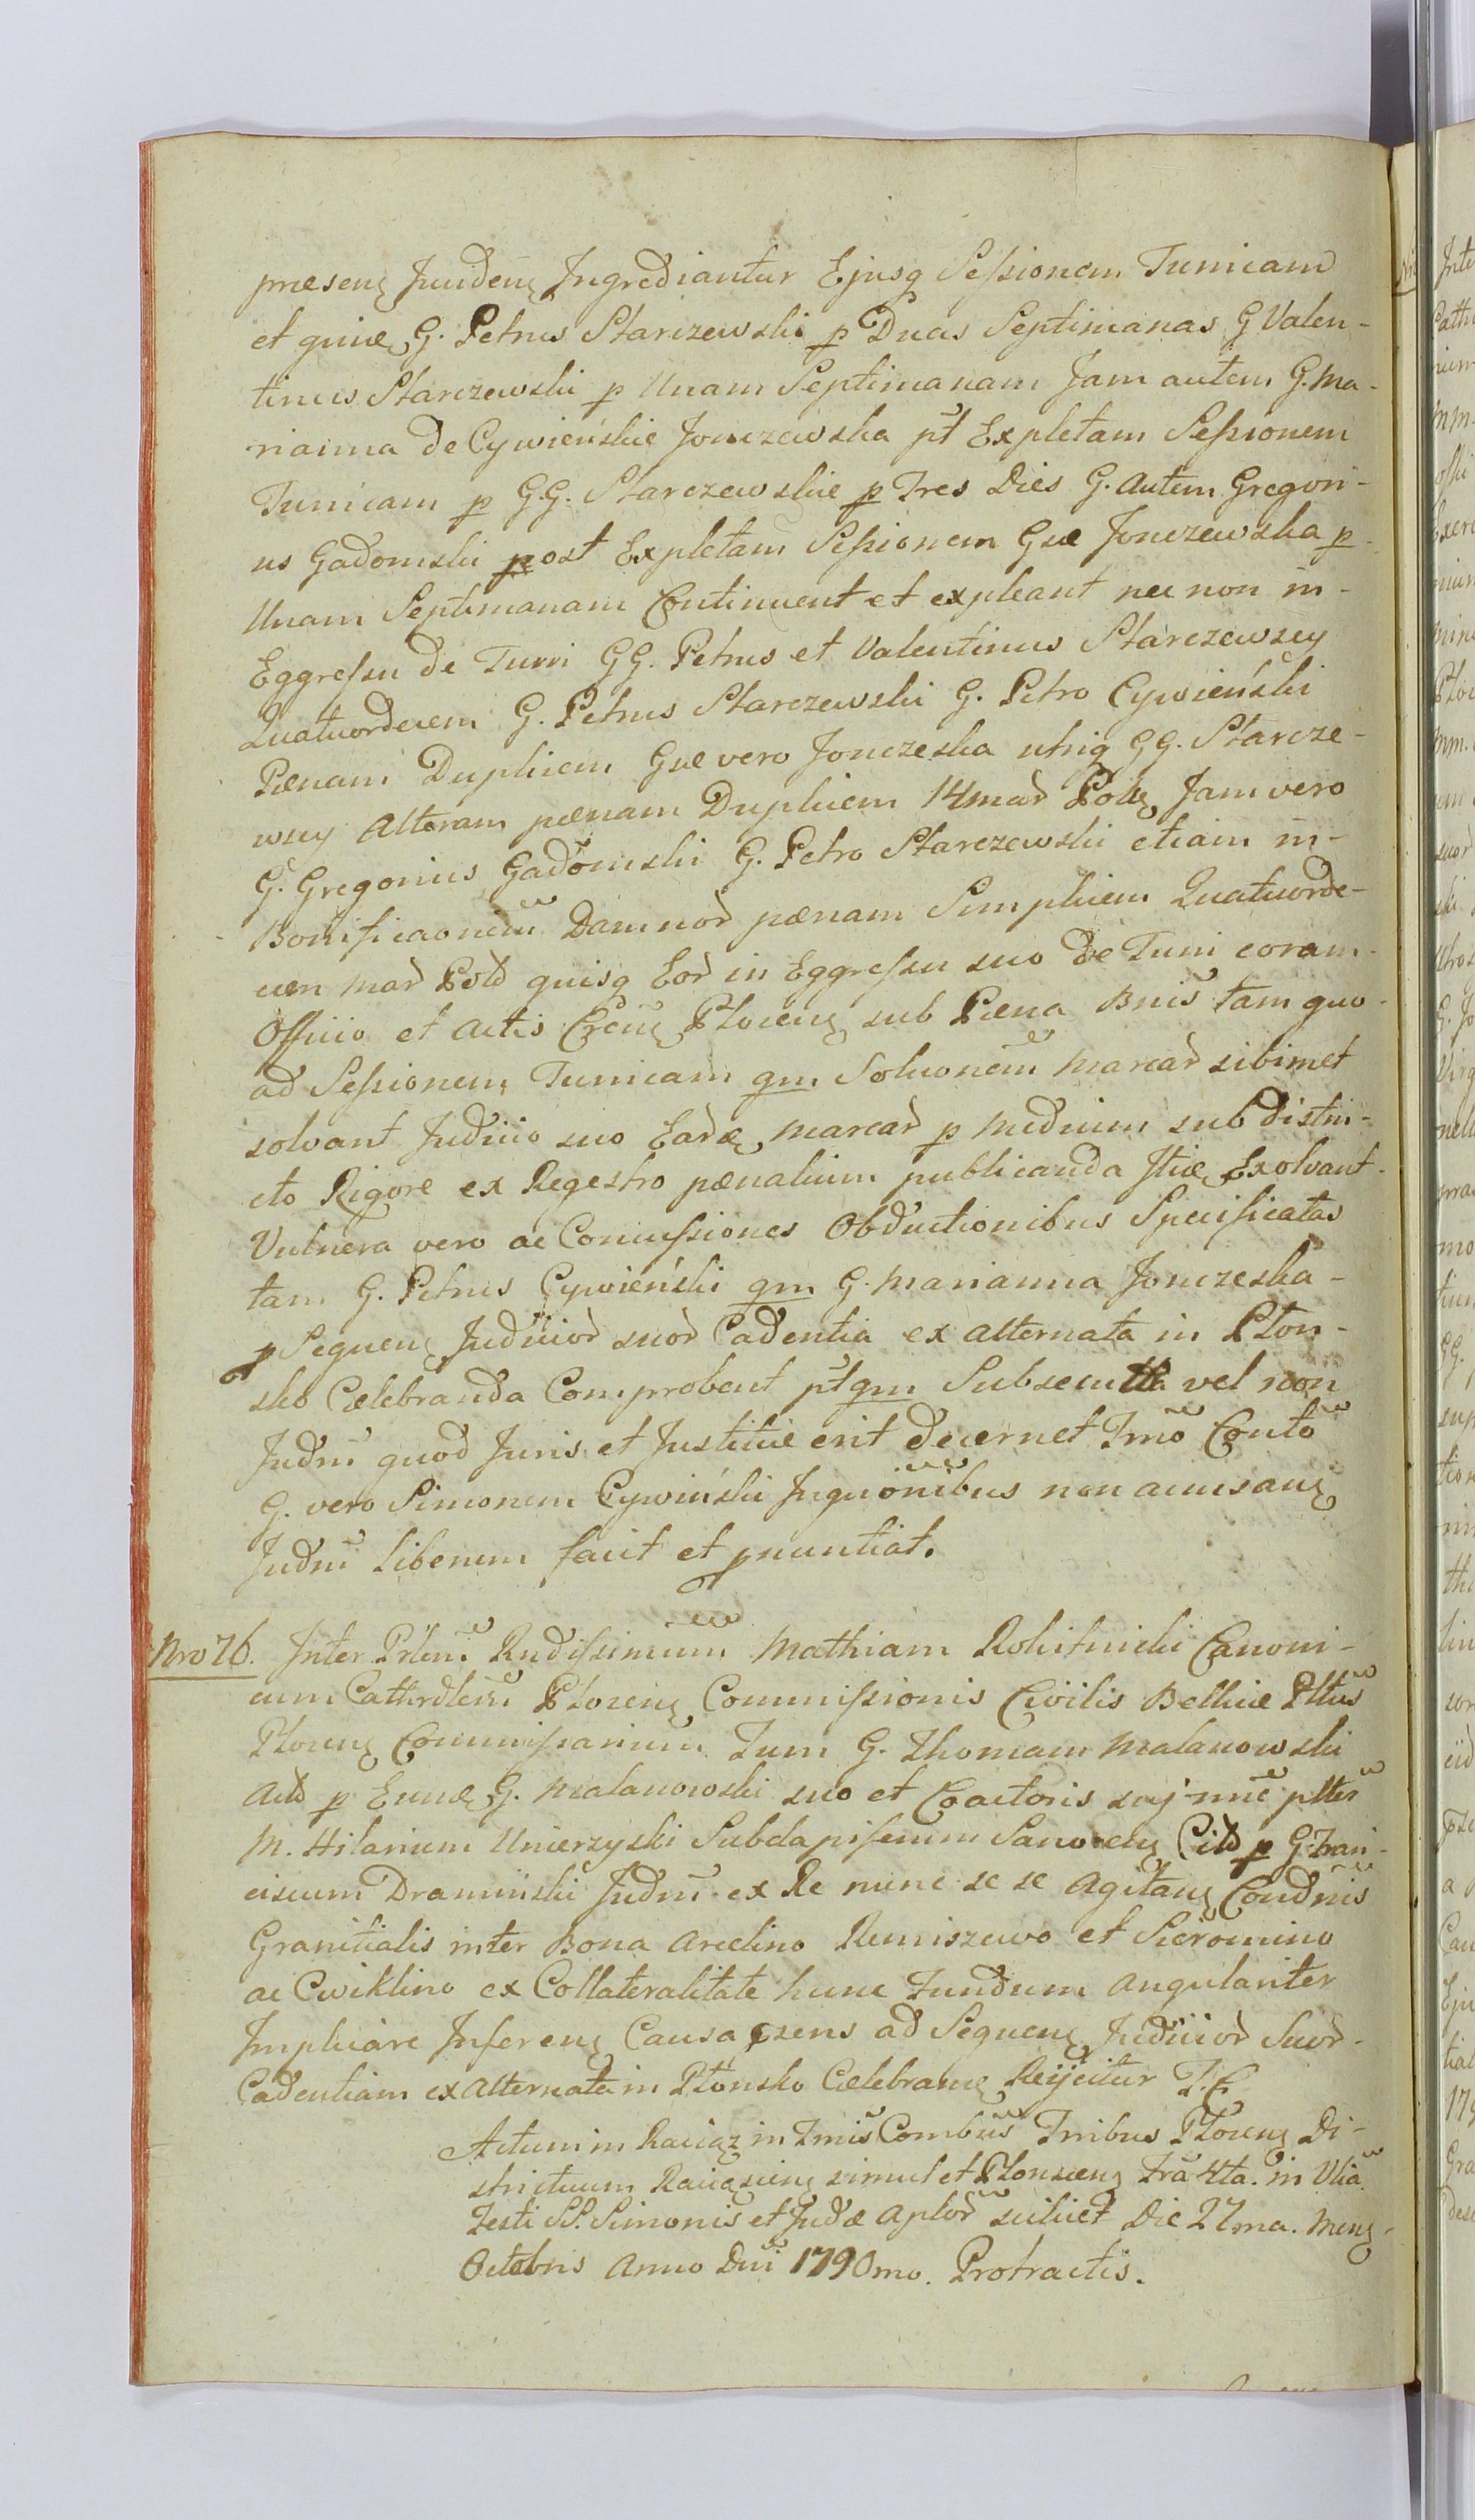 præsenς Juridenς Ingrediantur Ejusq Seſsionem Turricam
et quivς G. Petrus Starczewski p Duas Septimanas G Valen-
tinus Starczewski p Unam Septimanam Jam autem G. Ma-
rianna de Cywieńskie Jonczewska pt Expletam Seſsionem
Turricam p G.G. Starczewskie p Tres Dies G. Autem Gregori-
us Gadomski post Expletam Seſsionem Gsæ Jonczewska p
Unam Septimanam Continuent et expleant nec non in-
Eggreſsu de Turri GG. Petrus et Valentinus Starczewscy
Quatuordecem G. Petrus Starczewski G. Petro Cywieński
Pænam Duplicem Gsæ vero Jonczeska utriq GG. Starcze-
wscy Alteram pænam Duplicem 14 mar Polς Jam vero
G. Gregorius Gadomski G. Petro Starczewski etiam in-
Bonificaonem Damnor pænam Simplicem Quatuorde-
cem mar Pold quisq Eor in Eggreſsu suo de Turri coram-
Officio et Actis Crenς Plocenς sub Pæna Bnis tam quo-
ad Seſsionem Turricam qm Soluonem marcar sibimet
solvant Judicio suo Eardς marcar p medium sub distri-
cto Rigore ex Regestro pænalium publicanda Jtiæ Exolvant-
Vulnera vero ac Concuſsiones Obductionibus Specificatas
tam G. Petrus Cywieński qm G. Marianna Jonczeska-
p Sequenς Judicior suor Cadentia ex alternata in Plon-
sko Cælebranda Comprobent ptqm Subsecutta vel non
Judm quod Juris et Justitiæ erit decernet Tmo Conto
G. vero Simonem Cywiński Inquonibus non accusanς
Judm Liberum facit et pnuntiat.
Nro 76. Inter Prlem Rndiſsimum Mathiam Rokitnicki Canoni-
cum Cathrdlem Plocenς Commiſsionis Civilis Bellicæ Pltus
Plocenς Commiſsarium Tum G. Thomam Malanowski
Act p Eundς G. Malanowski suo et Coactoris suj nne plter
M. Hilarium Unierzyski Subdapiferum Sanocenς Citt p G. Fran-
ciscum Dramiński Judm ex Re nunc se se Agitanς Condnis
Granitialis inter Bona Arcelino Remiszewo et Sieromino
ac Cwiklino ex Collateralitate hunc Fundum angulariter
Implicare Inferenς Causa pzens ad Sequenς Judicior Suor-
Cadentiam ex Alternata in Płonsko Cælebranς Reijcitur T. C.
Actum in Raciąz in Tmis Combus Tribus Plocenς Di-
strictuum Raciązenς simul et Plonscenς Fra 4ta. in Vlia
Festi SS. Simonis et Judæ Aplor scilicet Die 27ma. Menς-
Octobris Anno Dni 1790mo. Protractis.